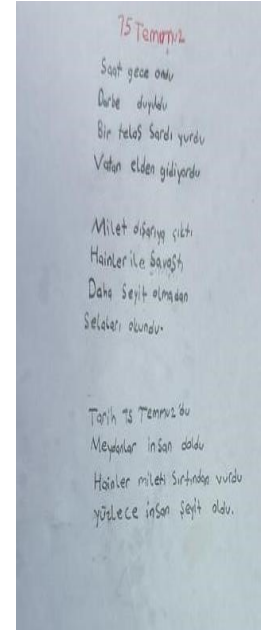 15 Temmuz
Saat gece ondu
Darbe duyuldu
Bir telaş Sardı yurdu
Vatan elden gidiyordu
Milet dışarıya çıktı
Hainler ile Savaştı
Daha Şeyit olmadan
Selaları okundu.
Tarih 15 Temmuz'du
Meydanlar insan doldu
Hainler mileti Sırtından vurdu
yüzlece insan Şeyit oldu.